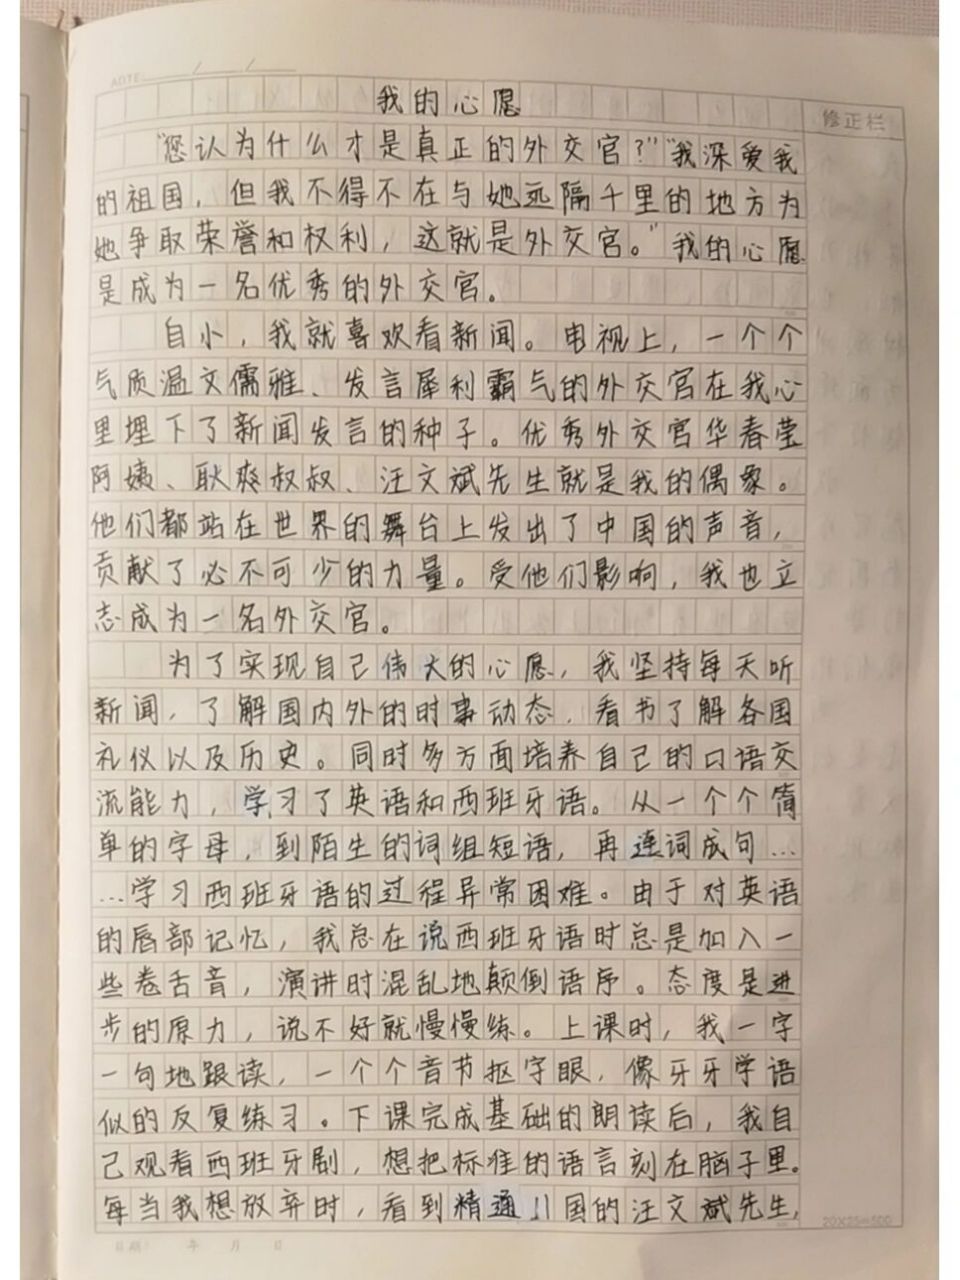 ADTE / /
我的心愿
修正栏
“您认为什么才是真正的外交官?”“我深爱我
的祖国，但我不得不在与她远隔千里的地方为
她争取荣誉和权利，这就是外交官。”我的心愿
是成为一名优秀的外交官。
自小，我就喜欢看新闻。电视上，一个个
气质温文儒雅、发言犀利霸气的外交官在我心
里埋下了新闻发言的种子。优秀外交官华春莹
阿姨、耿爽叔叔、汪文斌先生就是我的偶象。
他们都站在世界的舞台上发出了中国的声音，
贡献了必不可少的力量。受他们影响，我也立
志成为一名外交官。
为了实现自己伟大的心愿，我坚持每天听
新闻，了解国内外的时事动态，看书了解各国
礼仪以及历史。同时多方面培养自己的口语交
流能力，学习了英语和西班牙语。从一个个简
单的字母，到陌生的词组短语，再连词成句…
…学习西班牙语的过程异常困难。由于对英语
的唇部记忆，我总在说西班牙语时总是加入一
些卷舌音，演讲时混乱地颠倒语序。态度是进
步的原力，说不好就慢慢练。上课时，我一字
一句地跟读，一个个音节抠字眼，像牙牙学语
似的反复练习。下课完成基础的朗读后，我自
己观看西班牙剧，想把标准的语言刻在脑子里。
每当我想放弃时，看到精通 国的汪文斌先生，
20X25=500
日期: 年 月 日